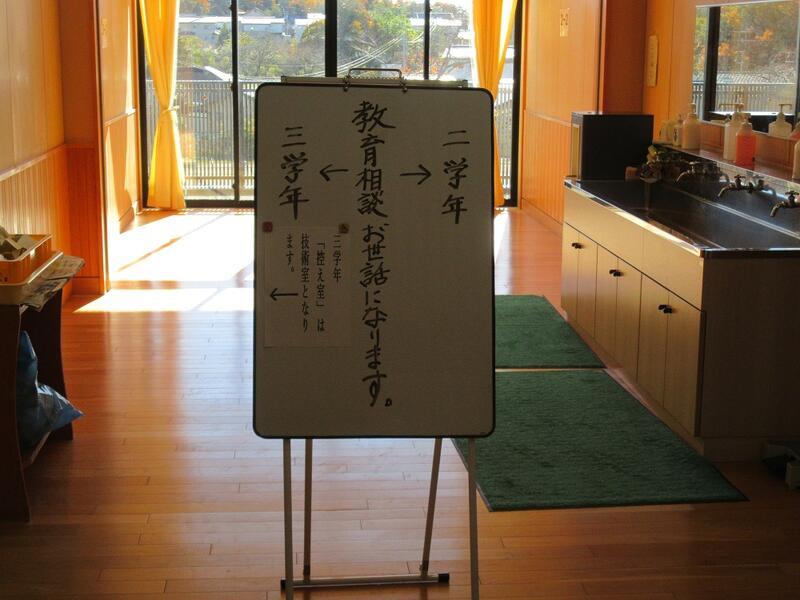 二学年
→
教育相談お世話になります。
←
三学年
三学年
「控え室」は
技術室となり
ます。
←